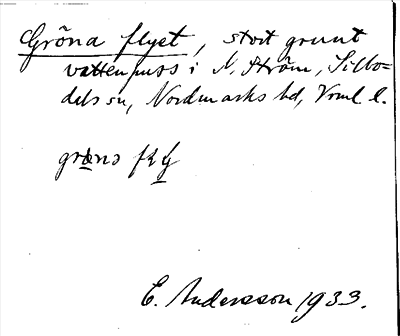 Gröna flyet, stort grunt
vattenpuss i N. Ström, Sillbo-
dals sn, Nordmarks hd, Vrml l.
E. Andersson 1933.